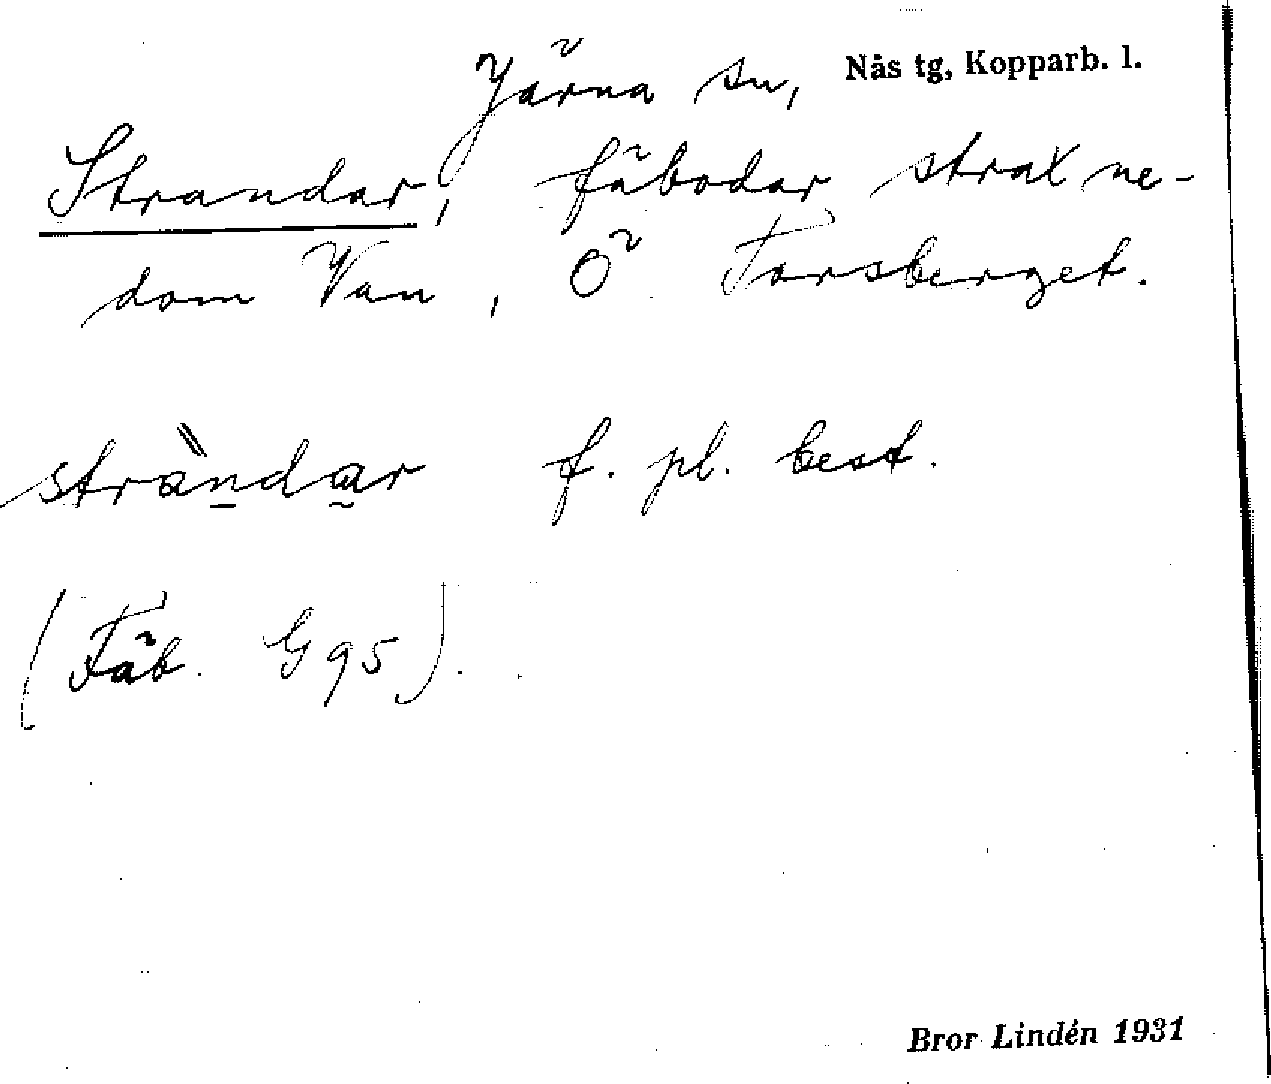 Järna sn, Nås tg, Kopparb. l.
Strandar, fäbodar strax ne-
dom Van, Ö Forsberget.
stràndar f. pl. best.
(Fäb. G 95).
Bror Lindén 1931